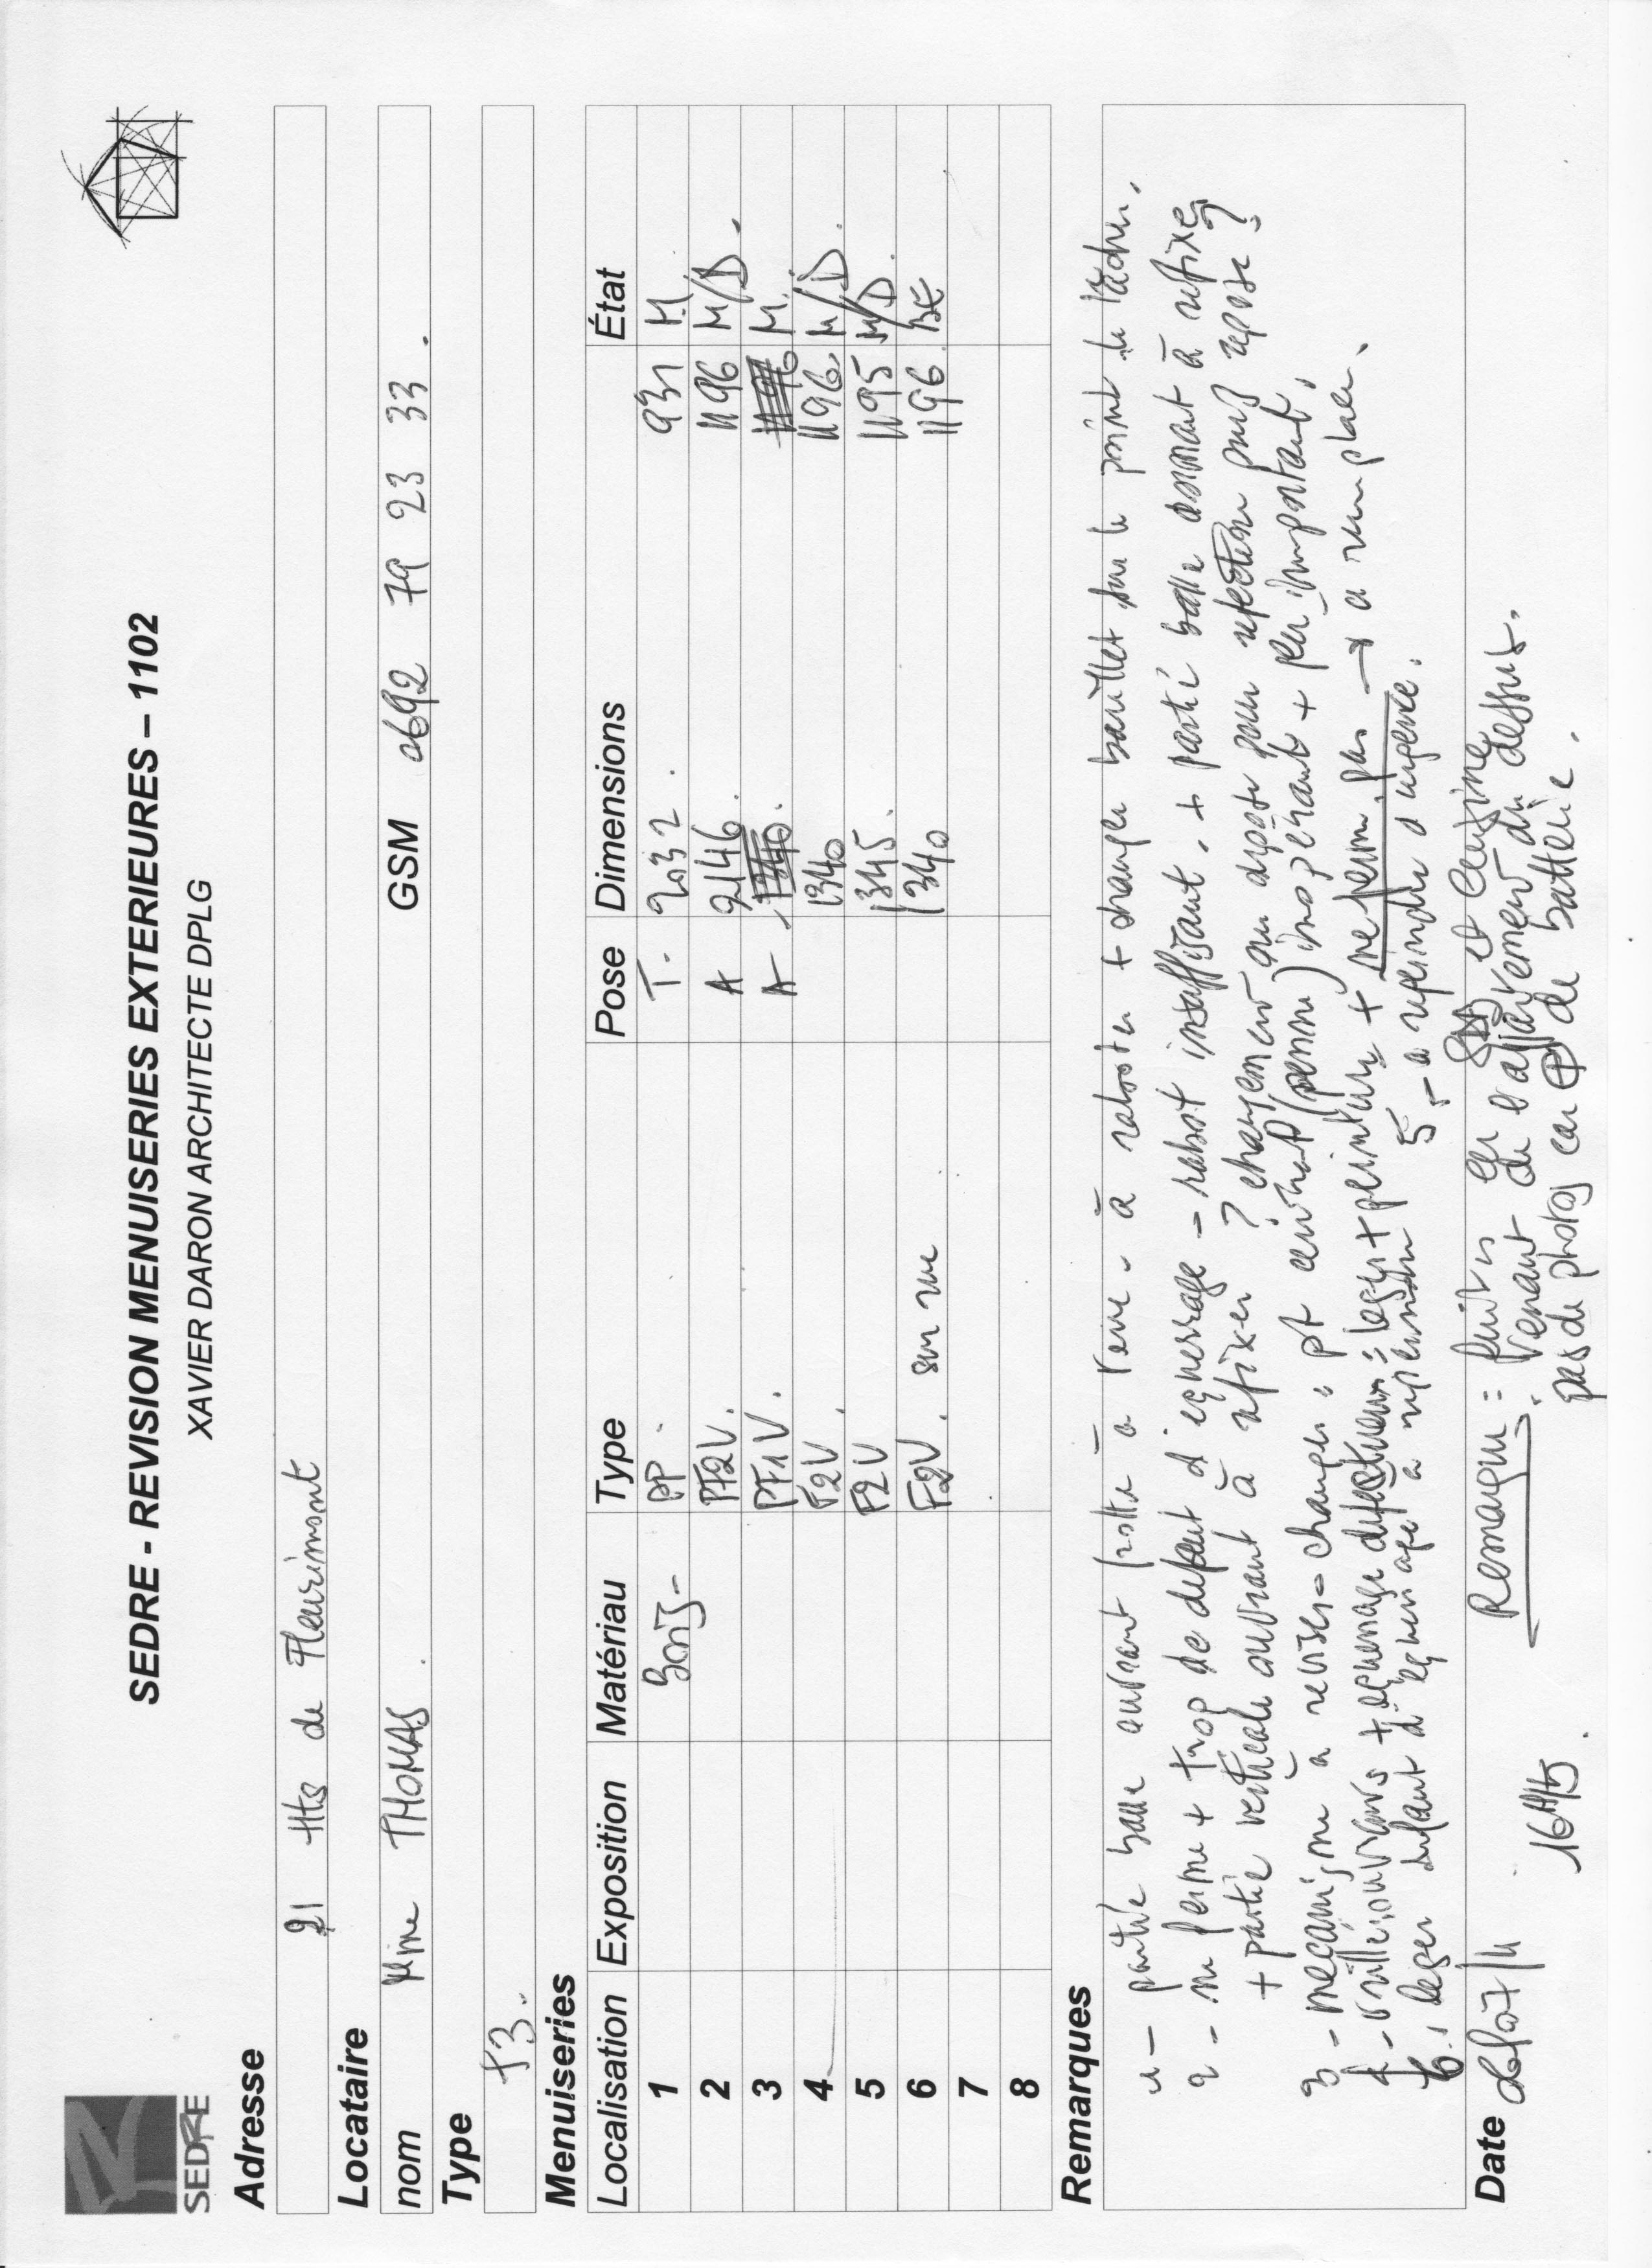 SEDRE
SEDRE - REVISION MENUISERIES EXTERIEURES – 1102
XAVIER DARON ARCHITECTE DPLG
Adresse
21 Hts de Fleurimont
Locataire
nom Mme THOMAS. GSM 0692 79 23 33.
Type
T3.
Menuiseries
Localisation Exposition Matériau Type Pose Dimensions État
1 Bois - PP. T. 2032. 931 M.
2 PF2V. A 2146. 1196 M/D.
3 PF1V. A M.
4 F2V 1340 1196. M/D.
5 F2V 1345. 1195 M/D.
6 F2V. sur rue 1340 1196 BE
7
8
Remarques
1 - partie basse ouvrant frotte à à raboter + changer barillet sur le point de lâcher.
2 - ne ferme + trop de défaut d'équerrage = rabot insuffisant. + partie basse dormant à refixer
+ partie verticale ouvrant à refixer ? changement ou dépose pour réfection puis repose ?
3 - mécanisme à réviser = changer. pt central (penne) inopérant + jeu important.
4 - + équerrage défectueux : + peinture + ne ferme pas → a remplacer.
6. léger défaut d'équerrage a reprendre 5 - a reprendre d'urgence.
Date 16H15.
Remarque = fuites et cuisine
venant de du dessus.
pas de photos car de batterie.